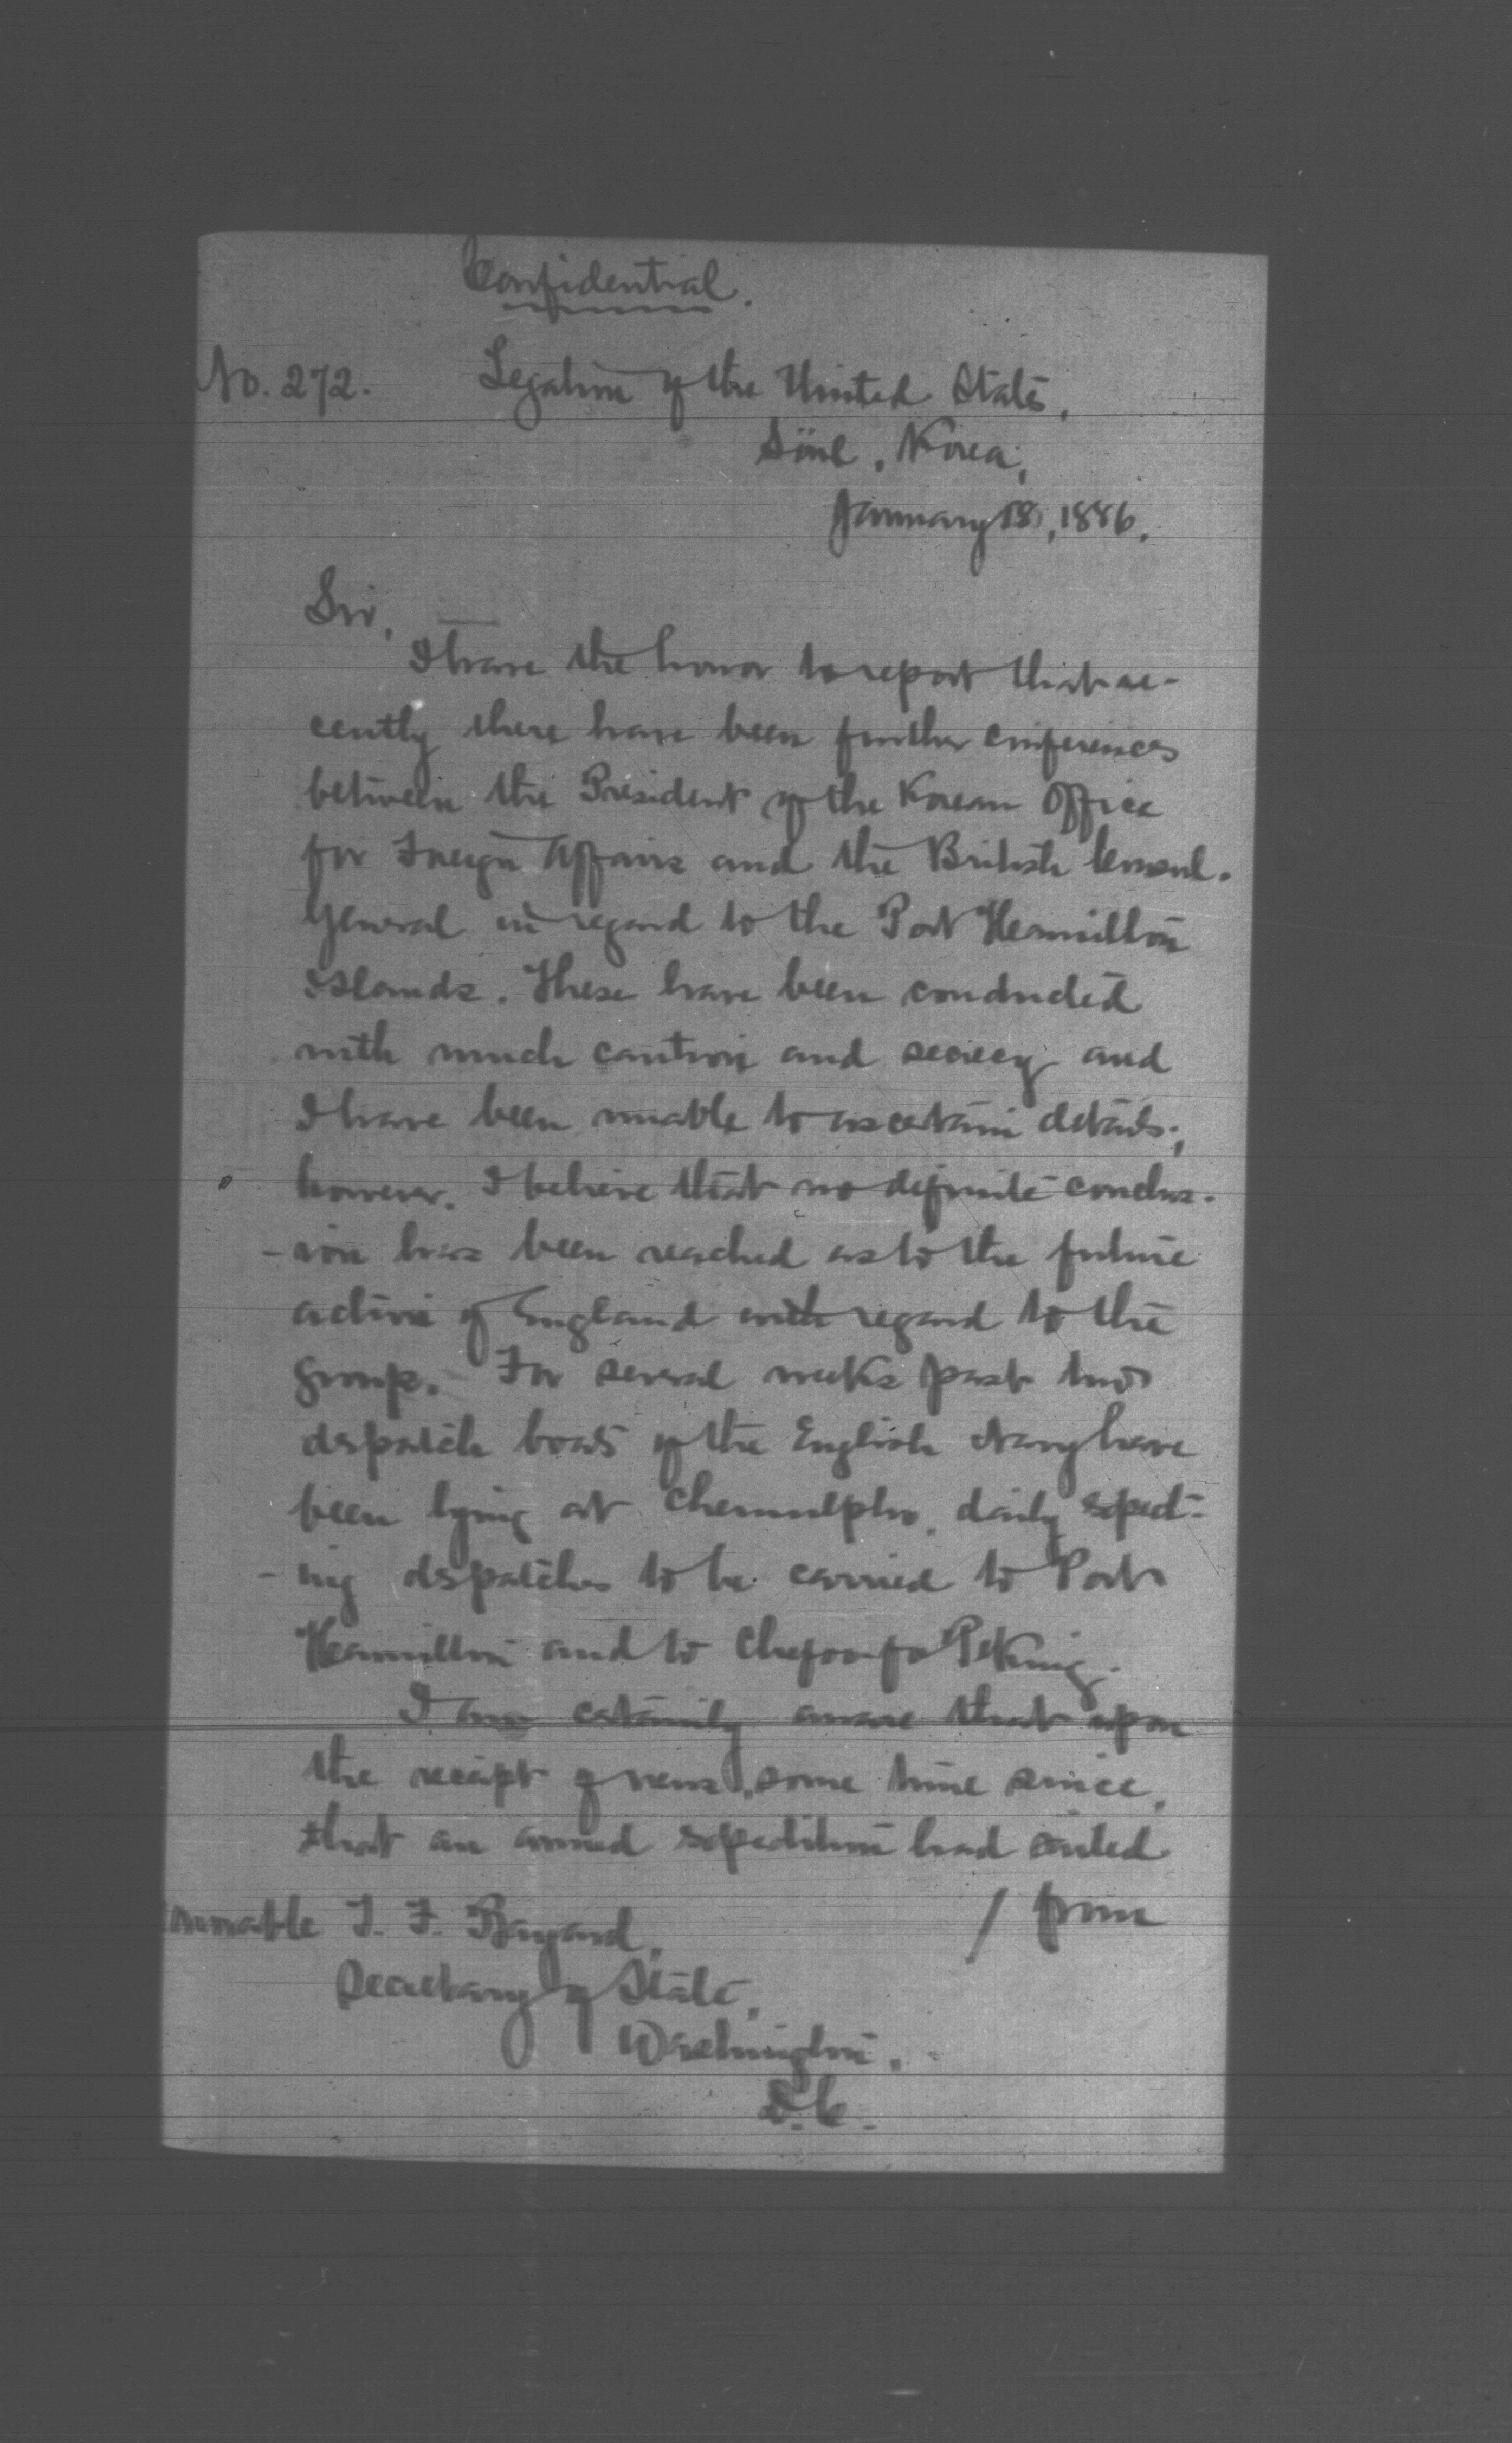 Confidential.
No. 272. Legation of the United States,
Söul, Korea,
January 18, 1886.
Sir,
I have the honor to report that re-
cently there have been further conferences
between the President of the Korean Office
for Foreign Affairs and the British Consul-
General in regard to the Port Hamilton
Islands. These have been conducted
with much caution and secrecy and
I have been unable to ascertain details;
however, I believe that no definite conclus-
-ion has been reached as to the future
action of England with regard to the
group. For several weeks past two
dispatch boats of the English Navy have
been lying at Chemulpho, daily expect-
-ing dispatches to be carried to Port
Hamilton and to Chefoo for Peking.
I am certainly aware that upon
the receipt of news, some time since,
that an armed expedition had sailed
/ from
Honorable T. F. Bayard,
Secretary of State,
Washington,
D.C.